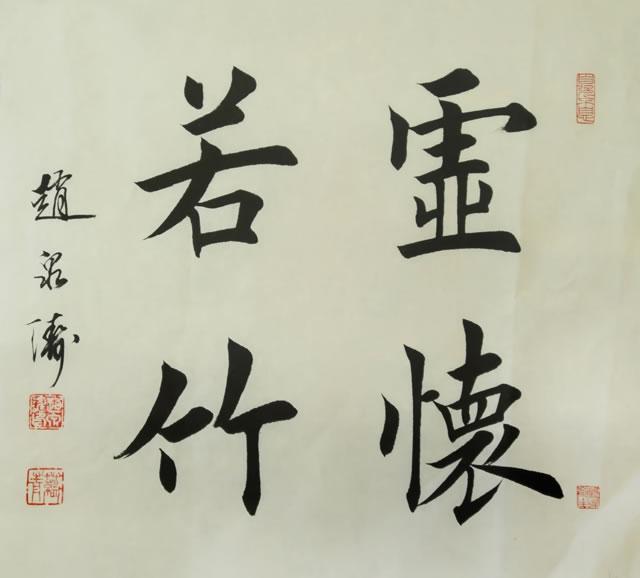 虛懷
若竹
趙泉濤